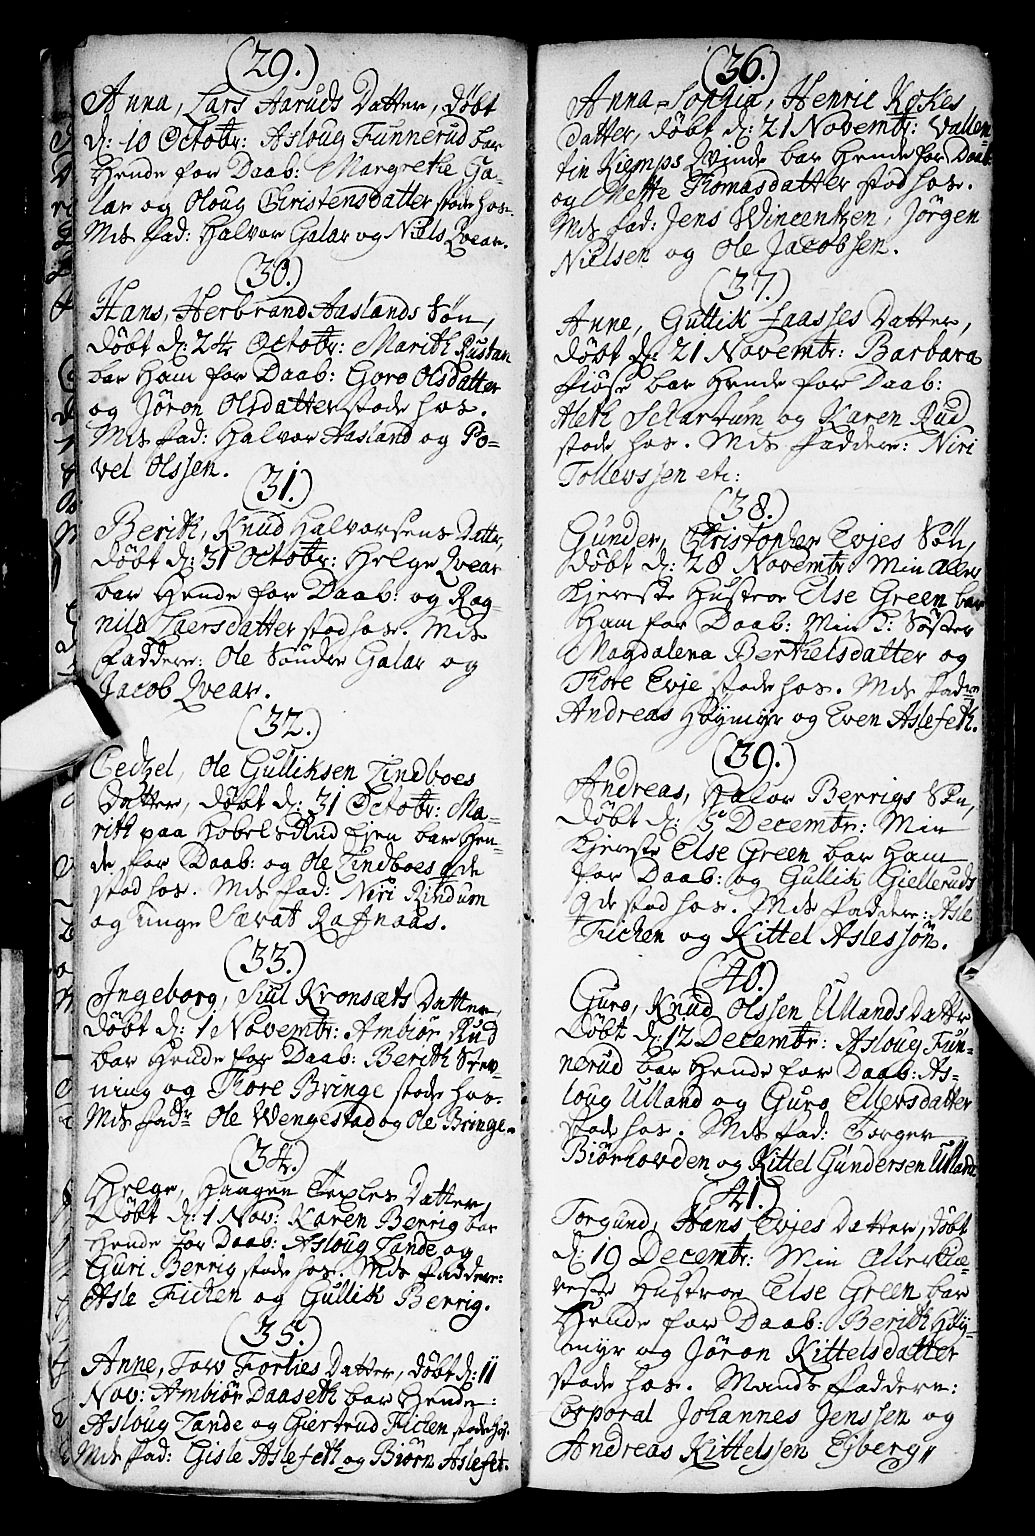 (29.)
Anna, Lars Aaruds Datter, døbt
d: 10 Octobr: Asloug Funnerud bar
Hende for Daab: Margrethe Ga-
lar og Oloug Christensdatter stode hos.
Mds fad: Halvor Galar og Niels Qvear.
(30.)
Hans, Herbrand Aaslands Søn,
døbt d: 24 Octobr: Marith Rustan
bar Ham for Daab: Goro Olsdatter
og Jøron Olsdatter stode hos.
Mds fad: Halvor Aasland og Po-
vel Olssen.
(31.)
Berith, Knud Halvorsens Dattr,
døbt d: 31 Octobr: Helge Qvear
bar Hende for Daab: og Rag-
nild Larsdatter stod hos. Mds
Faddere: Ole Søndre Galar og
Jacob Qvear.
(32.)
Cedzel, Ole Gulliksen Lindboes
Datter, døbt d: 31 Octobr: Ma-
rith paa Hobelsrud Ejen bar Hen-
de for Daab: og Ole Lindboes qde
stod hos. Mds fad: Niri Rindum
og unge Sævat Rafnaas.
(33.)
Ingeborg, Siul Kronsæts Datter,
døbt d: 1 Novembr: Ambiør Rud
bar Hende for Daab: Berith Stev-
ning og Thore Bringe stode hos.
Mds fadr Ole Wengestad og Ole Bringe.
(34.)
Helge, Haagen Texles Datter,
døbt d: 1 Nov: Karen Berrig bar
Hende for Daab: Asloug Lande og
Guri Berrig stode hos. Mds faddere:
Asle Fichen og Gullik Berrig.
(35.)
Anne, Tov Forties Datter, døbt d: 11
Nov: Ambiør Daaseth bar Hende:
Asloug Lande og Giertrud Fichen stode hos.
Mds fad: Gisle Aslefeth og Biørn Aslefet.
(36.)
Anna-Sophia, Henric Kokes
Datter, døbt d: 21 Novembr: Vallen-
tin Kiemps Qvinde bar Hende for Daab
og Mette Thomasdatter stod hos.
Mds fad: Jens Wincentzen, Jörgen
Nielsen og Ole Jacobsen.
(37.)
Anne, Gullik Laasses Datter,
døbt d: 21 Novembr: Barbara
Fiøse bar Hende for Daab:
Aleth Schartum og Karen Rud
stode hos. Mds faddere: Niri
Tollevssen etc:
(38.)
Gunder, Christopher Evjes Søn,
døbt d: 28 Novembr Min aller
kjereste Hustroe Else Green bar
Ham for Daab: Min S: Søster
Magdalena Berthelsdatter og
Thore Evje stode hos. Mds fadre
Andreas Høymyr og Even Aslefeth.
(39.)
Andreas, Halvor Berrigs Søn,
døbt d: 5 Decembr: Min
kjereste Else Green bar Ham
for Daab: og Gullik Gielleruds
Qde stod hos. Mds Faddere: Asle
Fichen og Kittel Aslessøn.
(40.)
Guro, Knud Olssen Ullands Dattr
døbt d: 12 Decembr: Asloug Fun-
nerud bar Hende for Daab: As-
loug Ulland og Guro Ellevsdatter
stode hos. Mds fad: Torger
Biørhovden og Kittel Gundersen Ulland.
(41.)
Torgund, Hans Evjes Datter, døbt
d: 19 Decembr: Min Allerkiæ-
reste Hustroe Else Green bar
Hende for Daab: Berith Høy-
myr og Jøron Kittelsdatter
stode hos. Mands Faddere:
Corporal Johannes Jenssen og
Andreas Kittelssen Ejberg